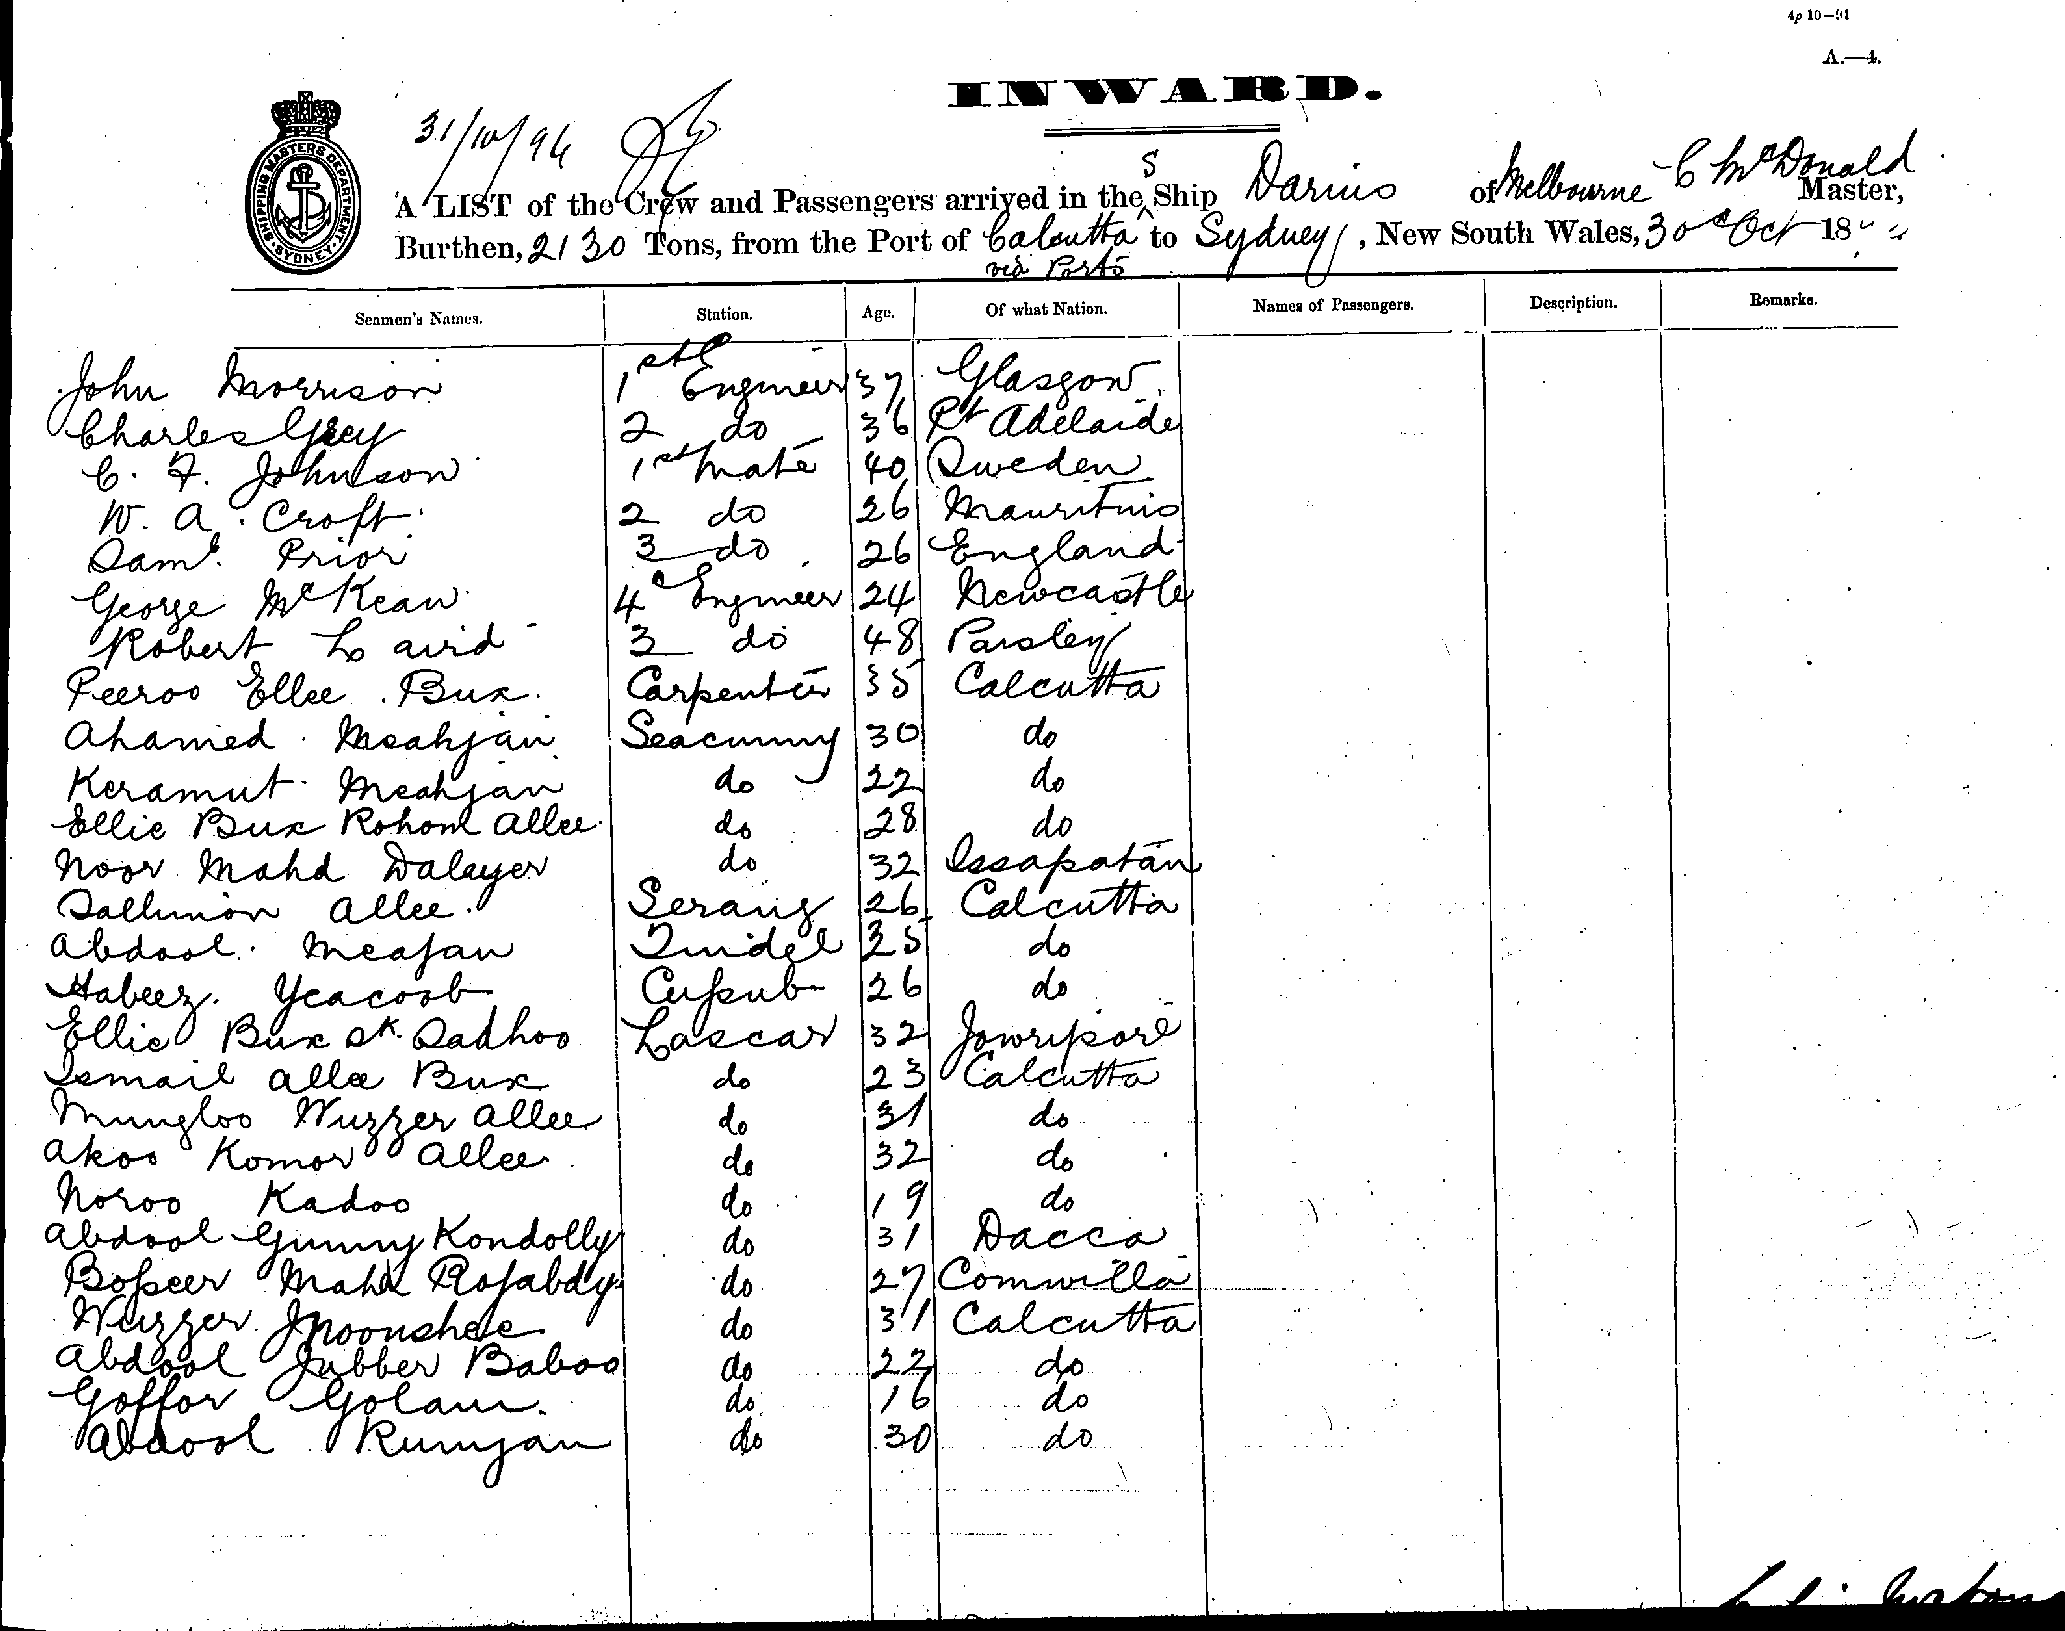 4p 10—91
A.—4.
INWARD.
31/10/94
SHIPPING MASTERS DEPARTMENT SYDNEY
A LIST of the Crew and Passengers arrived in the S Ship Darius of Melbourne C McDonald Master,
Burthen, 2130 Tons, from the Port of Calcutta to Sydney, New South Wales, 30th Oct 18" "
via Ports
Seamen's Names. Station. Age. Of what Nation. Names of Passengers. Description. Remarks.
John Morrison 1st Engineer 37 Glasgow
Charles Grey 2 do 36 Pt Adelaide
C. F. Johnson 1st Mate 40 Sweden
W. A. Croft 2 do 26 Mauritius
Saml. Prior 3 do 26 England
George McKean 4 Engineer 24 Newcastle
Robert Laird 3 do 48 Paisley
Peeroo Ellee Bux. Carpenter 35 Calcutta
Ahamed Meahjan Seacunny 30 do
Keramut Meahjan do 22 do
Ellie Bux Rohom Allee do 28 do
Noor Mahd Dalayer do 32 Issapatan
Sallimon Allee. Serang 26 Calcutta
Abdool Meajan Tindel 25 do
Habeez Yeacoob 26 do
Ellie Bux Sk. Sadhoo Lascar 32 Jowripore
Ismail Allee Bux do 23 Calcutta
Mungloo Wuzzer Allee do 31 do
Akoo Komor Allee do 32 do
Noroo Kadoo do 19 do
Abdool Gunny Kondolly do 31 Dacca
Bosseer Mahd Rojabdy do 27 Comwilla
Wuzzer Moonshee do 31 Calcutta
Abdool Jubber Baboo do 22 do
Goffor Golam. do 16 do
Abdool Rumjan do 30 do